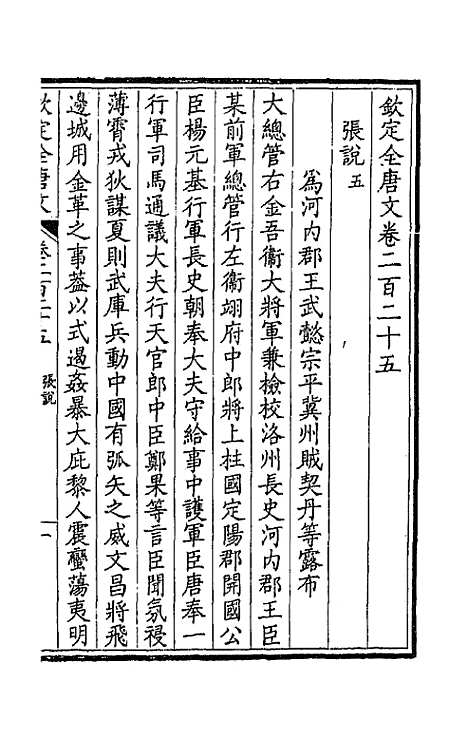 欽定全唐文卷二百二十五
張說五
為河内郡王武懿宗平冀州賊契丹等露布
大總管右金吾衞大將軍兼檢校洛州長史河内郡王臣
某前軍總管行左衞翊府中郎將上柱國定陽郡開國公
臣楊元基行軍長史朝奉大夫守給事中護軍臣唐奉一
行軍司馬通議大夫行天官郎中臣鄭果等言臣聞氛祲
薄霄戎狄謀夏則武庫兵動中國有弧矢之威文昌將飛
邊城用金革之事葢以式遏姦暴大庇黎人震蠻蕩夷明
欽定全唐文 卷二百二十五 張說 一